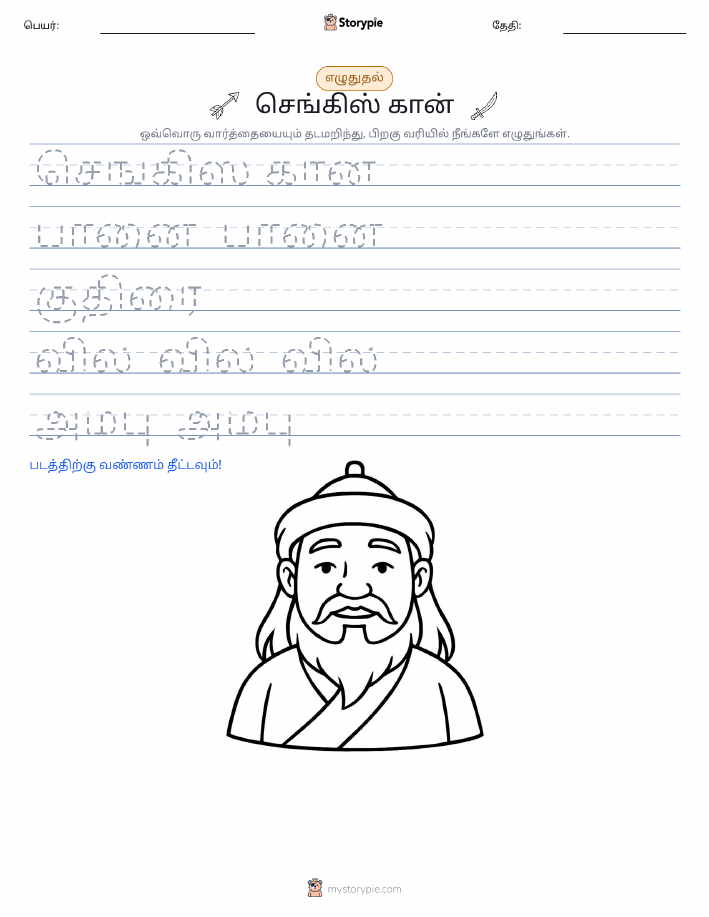 பெயர்:
Storypie
தேதி:
எழுதுதல்
செங்கிஸ் கான்
ஒவ்வொரு வார்த்தையையும் தடமறிந்து, பிறகு வரியில் நீங்களே எழுதுங்கள்.
செஙகிஸ கான
பானை பானை
குதிரை
வில வில வில
அமபு அமபு
படத்திற்கு வண்ணம் தீட்டவும்!
mystorypie.com